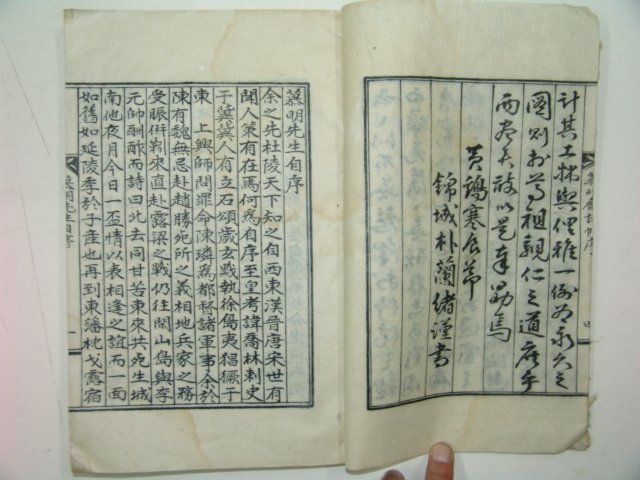 計其工拙與俚雅一例爲永久之
圖則於吾祖親仁之道庶乎
兩盡矣敢以是奉勗焉
黃鷄寒辰節
錦城朴蘭緒謹書
慕明先生自序
余之先杜陵天下知之自西東漢晉唐宋世有
聞人策有在焉何爲自序至皇考諱喬林刺史
于冀冀人有立石頌歲玄黓執徐島夷猖獗于
東 上興師問罪命陳璘爲都督諸軍事余於
陳有魏無忌赴趙勝宛所之義相地兵家之務
受賑併羈來直赴露梁之戰仍往閑山島與李
元帥酬酢而詩曰北去同甘苦東來共死生城
南他夜月今日一盃情以表相逢之誼而一面
如舊如延陵季於子産也再到東藩枕戈露宿